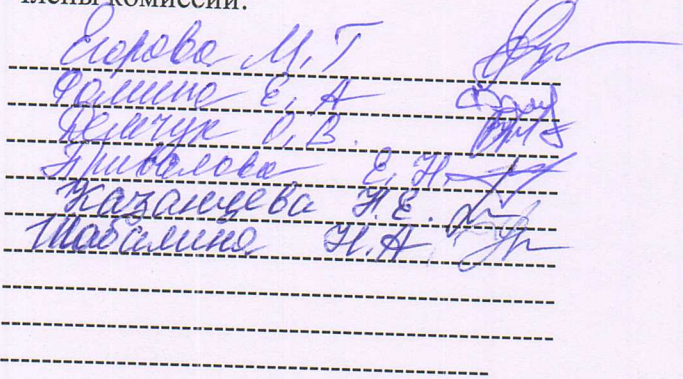 члены комиссии:
Егорова М. Т
Фомина Е. А
Демчук О. В.
Привалова Е. Н.
Казанцева Н. Е.
Шабалина Н. А.